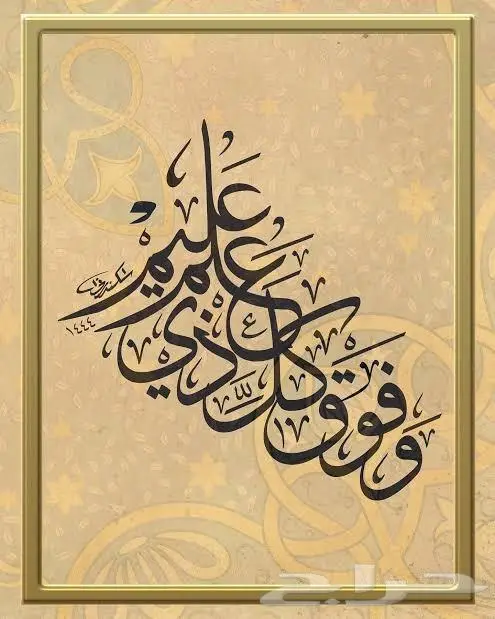 وَفَوْقَ كُلِّ ذِي عِلْمٍ عَلِيمٌ
١٤٤٤
حراج